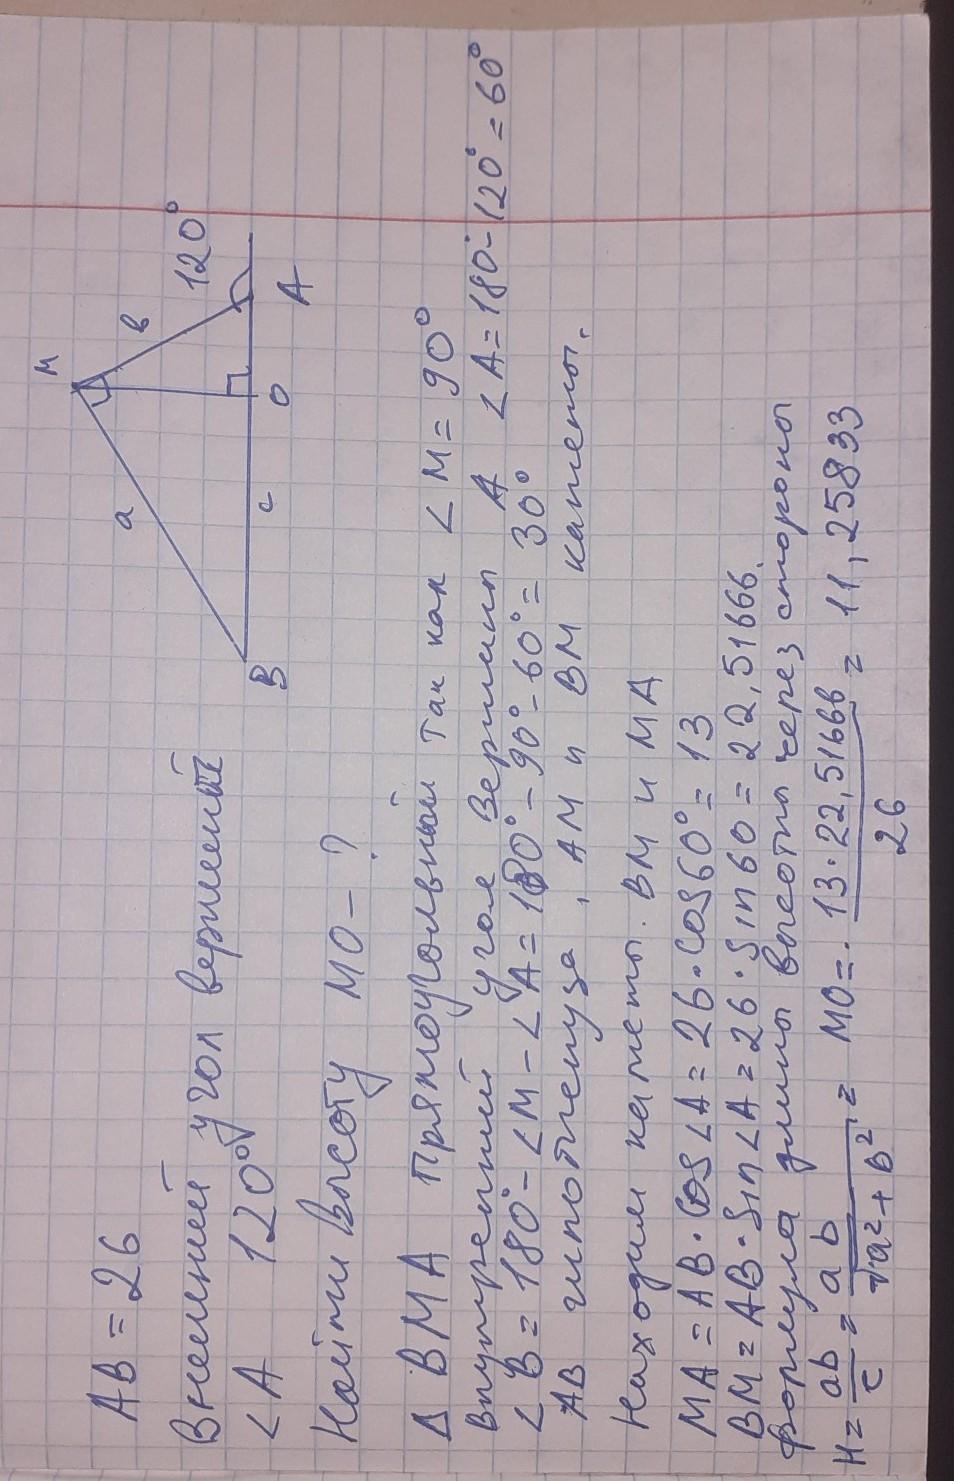 M
a
в
120°
B
c
O
A
AB = 26
Внешний угол вершины
∠A 120°
Найти высоту MO - ?
Δ BMA Прямоугольный так как ∠M = 90°
Внутренний угол Вершины A ∠A = 180-120° = 60°
∠B = 180° - ∠M - ∠A = 180° - 90° - 60° = 30°
AB гипотенуза, AM и BM катеты.
Находим катеты. BM и MA
MA = AB · COS ∠A = 26 · COS 60° = 13
BM = AB · Sin ∠A = 26 · Sin 60 = 22,51666.
формула длины высоты через стороны
H = ab/c = ab/√a²+b² = MO = 13·22,51666/26 = 11,25833